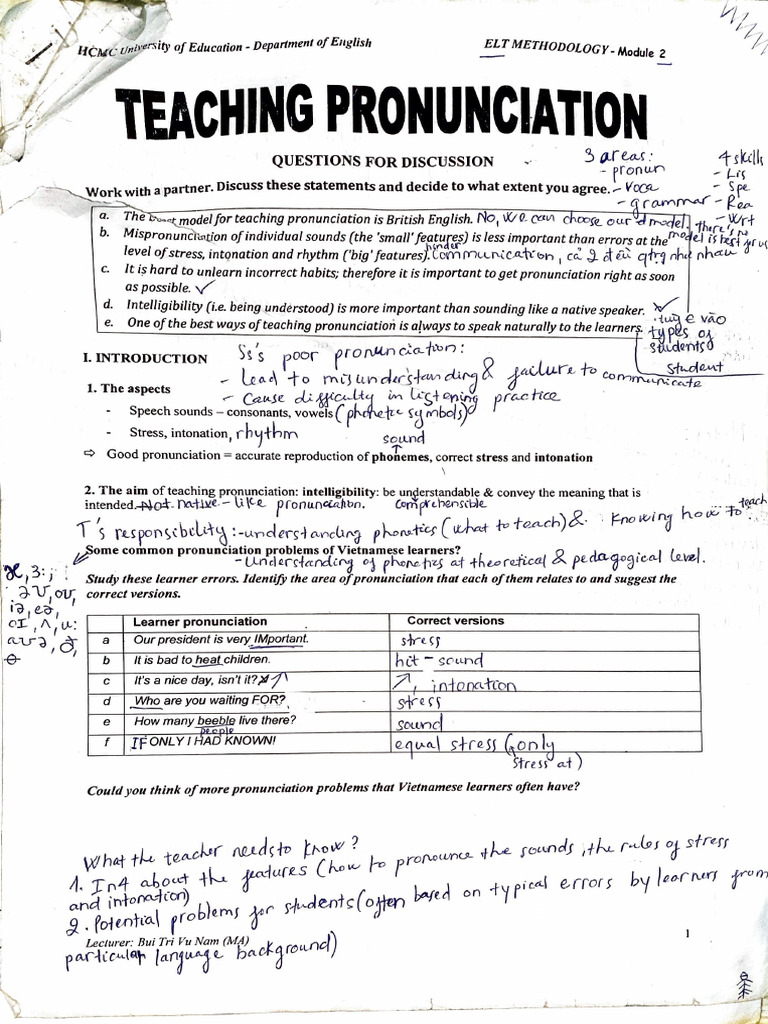 HCMC University of Education - Department of English ELT METHODOLOGY - Module 2
TEACHING PRONUNCIATION
QUESTIONS FOR DISCUSSION
3 areas:
- pronun
- Voca
- grammar
4 skills
- Lis
- Spe
- Rea
- Wrt
Work with a partner. Discuss these statements and decide to what extent you agree.
a. The model for teaching pronunciation is British English. No, we can choose our model. there's no
model is best for us
b. Mispronunciation of individual sounds (the 'small' features) is less important than errors at the
level of stress, intonation and rhythm ('big' features). hinder communication, cả 2 đều qtrg như nhau
c. It is hard to unlearn incorrect habits; therefore it is important to get pronunciation right as soon
as possible. ✓
d. Intelligibility (i.e. being understood) is more important than sounding like a native speaker. ✓
e. One of the best ways of teaching pronunciation is always to speak naturally to the learners.
tuỳ vào
types of
students
student
I. INTRODUCTION
Ss's poor pronunciation:
- Lead to misunderstanding & failure to communicate
- Cause difficulty in listening practice
1. The aspects
- Speech sounds – consonants, vowels (phonetic symbols)
- Stress, intonation, rhythm
sound
⇨ Good pronunciation = accurate reproduction of phonemes, correct stress and intonation
2. The aim of teaching pronunciation: intelligibility: be understandable & convey the meaning that is
intended. Not native - like pronunciation. comprehensible
T's responsibility: - understanding phonetics (what to teach) & knowing how to teach
Some common pronunciation problems of Vietnamese learners?
- Understanding of phonetics at theoretical & pedagogical level.
Study these learner errors. Identify the area of pronunciation that each of them relates to and suggest the
correct versions.
æ, ɜ:,
əʊ, oʊ,
ɪə, eə,
ɔɪ, ʌ, u:
aʊə, ð,
θ
Learner pronunciation Correct versions
a Our president is very IMportant. stress
b It is bad to heat children. hit - sound
c It's a nice day, isn't it? ↗ ↗, intonation
d Who are you waiting FOR? stress
e How many beeble live there? sound
people
f IF ONLY I HAD KNOWN! equal stress (only
stress at)
Could you think of more pronunciation problems that Vietnamese learners often have?
What the teacher needs to know?
1. In4 about the features (how to pronounce the sounds, the rules of stress
and intonation)
2. Potential problems for students (often based on typical errors by learners from
Lecturer: Bui Tri Vu Nam (MA) 1
particular language background)